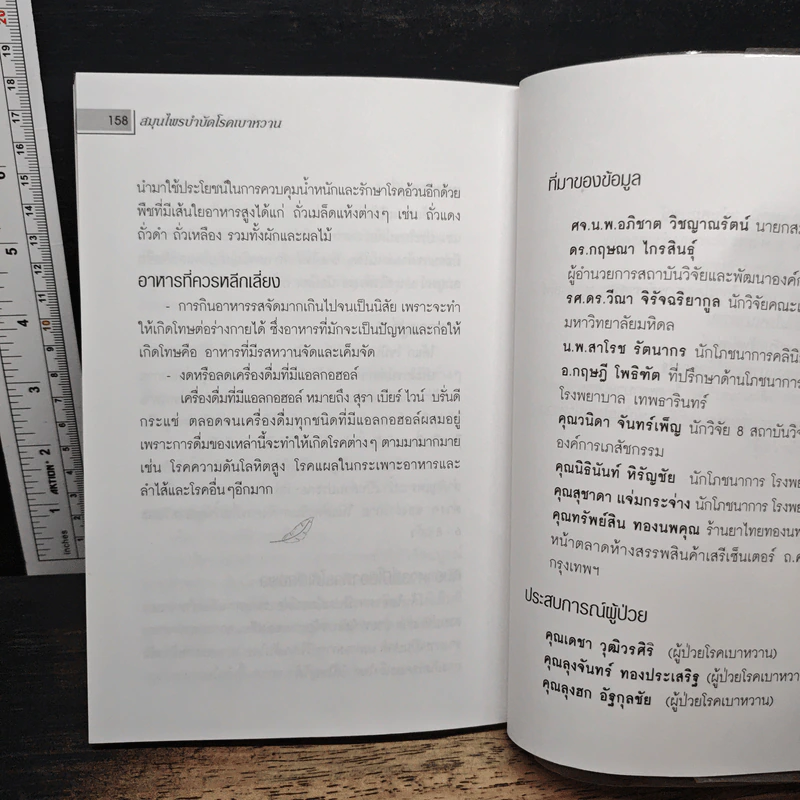 158 สมุนไพรบำบัดโรคเบาหวาน
นำมาใช้ประโยชน์ในการควบคุมน้ำหนักและรักษาโรคอ้วนอีกด้วย
พืชที่มีเส้นใยอาหารสูงได้แก่ ถั่วเมล็ดแห้งต่างๆ เช่น ถั่วแดง
ถั่วดำ ถั่วเหลือง รวมทั้งผักและผลไม้
อาหารที่ควรหลีกเลี่ยง
- การกินอาหารรสจัดมากเกินไปจนเป็นนิสัย เพราะจะทำ
ให้เกิดโทษต่อร่างกายได้ ซึ่งอาหารที่มักจะเป็นปัญหาและก่อให้
เกิดโทษคือ อาหารที่มีรสหวานจัดและเค็มจัด
- งดหรือลดเครื่องดื่มที่มีแอลกอฮอล์
เครื่องดื่มที่มีแอลกอฮอล์ หมายถึง สุรา เบียร์ ไวน์ บรั่นดี
กระแช่ ตลอดจนเครื่องดื่มทุกชนิดที่มีแอลกอฮอล์ผสมอยู่
เพราะการดื่มของเหล่านี้จะทำให้เกิดโรคต่างๆ ตามมามากมาย
เช่น โรคความดันโลหิตสูง โรคแผลในกระเพาะอาหารและ
ลำไส้และโรคอื่นๆอีกมาก
ที่มาของข้อมูล
ศจ.น.พ.อภิชาต วิชญาณรัตน์ นายกส
ดร.กฤษณา ไกรสินธุ์
ผู้อำนวยการสถาบันวิจัยและพัฒนาองค์ก
รศ.ดร.วีณา จิรัจฉริยากูล นักวิจัยคณะเ
มหาวิทยาลัยมหิดล
น.พ.สาโรช รัตนากร นักโภชนาการคลินิ
อ.กฤษฎี โพธิทัต ที่ปรึกษาด้านโภชนาการ
โรงพยาบาล เทพธารินทร์
คุณวนิดา จันทร์เพ็ญ นักวิจัย 8 สถาบันวิจ
องค์การเภสัชกรรม
คุณนิธินันท์ หิรัญชัย นักโภชนาการ โรงพย
คุณสุชาดา แจ่มกระจ่าง นักโภชนาการ โรงพย
คุณทรัพย์สิน ทองนพคุณ ร้านยาไทยทองนพ
หน้าตลาดห้างสรรพสินค้าเสรีเซ็นเตอร์ ถ.ศ
กรุงเทพฯ
ประสบการณ์ผู้ป่วย
คุณเดชา วุฒิวรศิริ (ผู้ป่วยโรคเบาหวาน)
คุณลุงจันทร์ ทองประเสริฐ (ผู้ป่วยโรคเบาหวา
คุณลุงฮก อัฐกุลชัย (ผู้ป่วยโรคเบาหวาน)